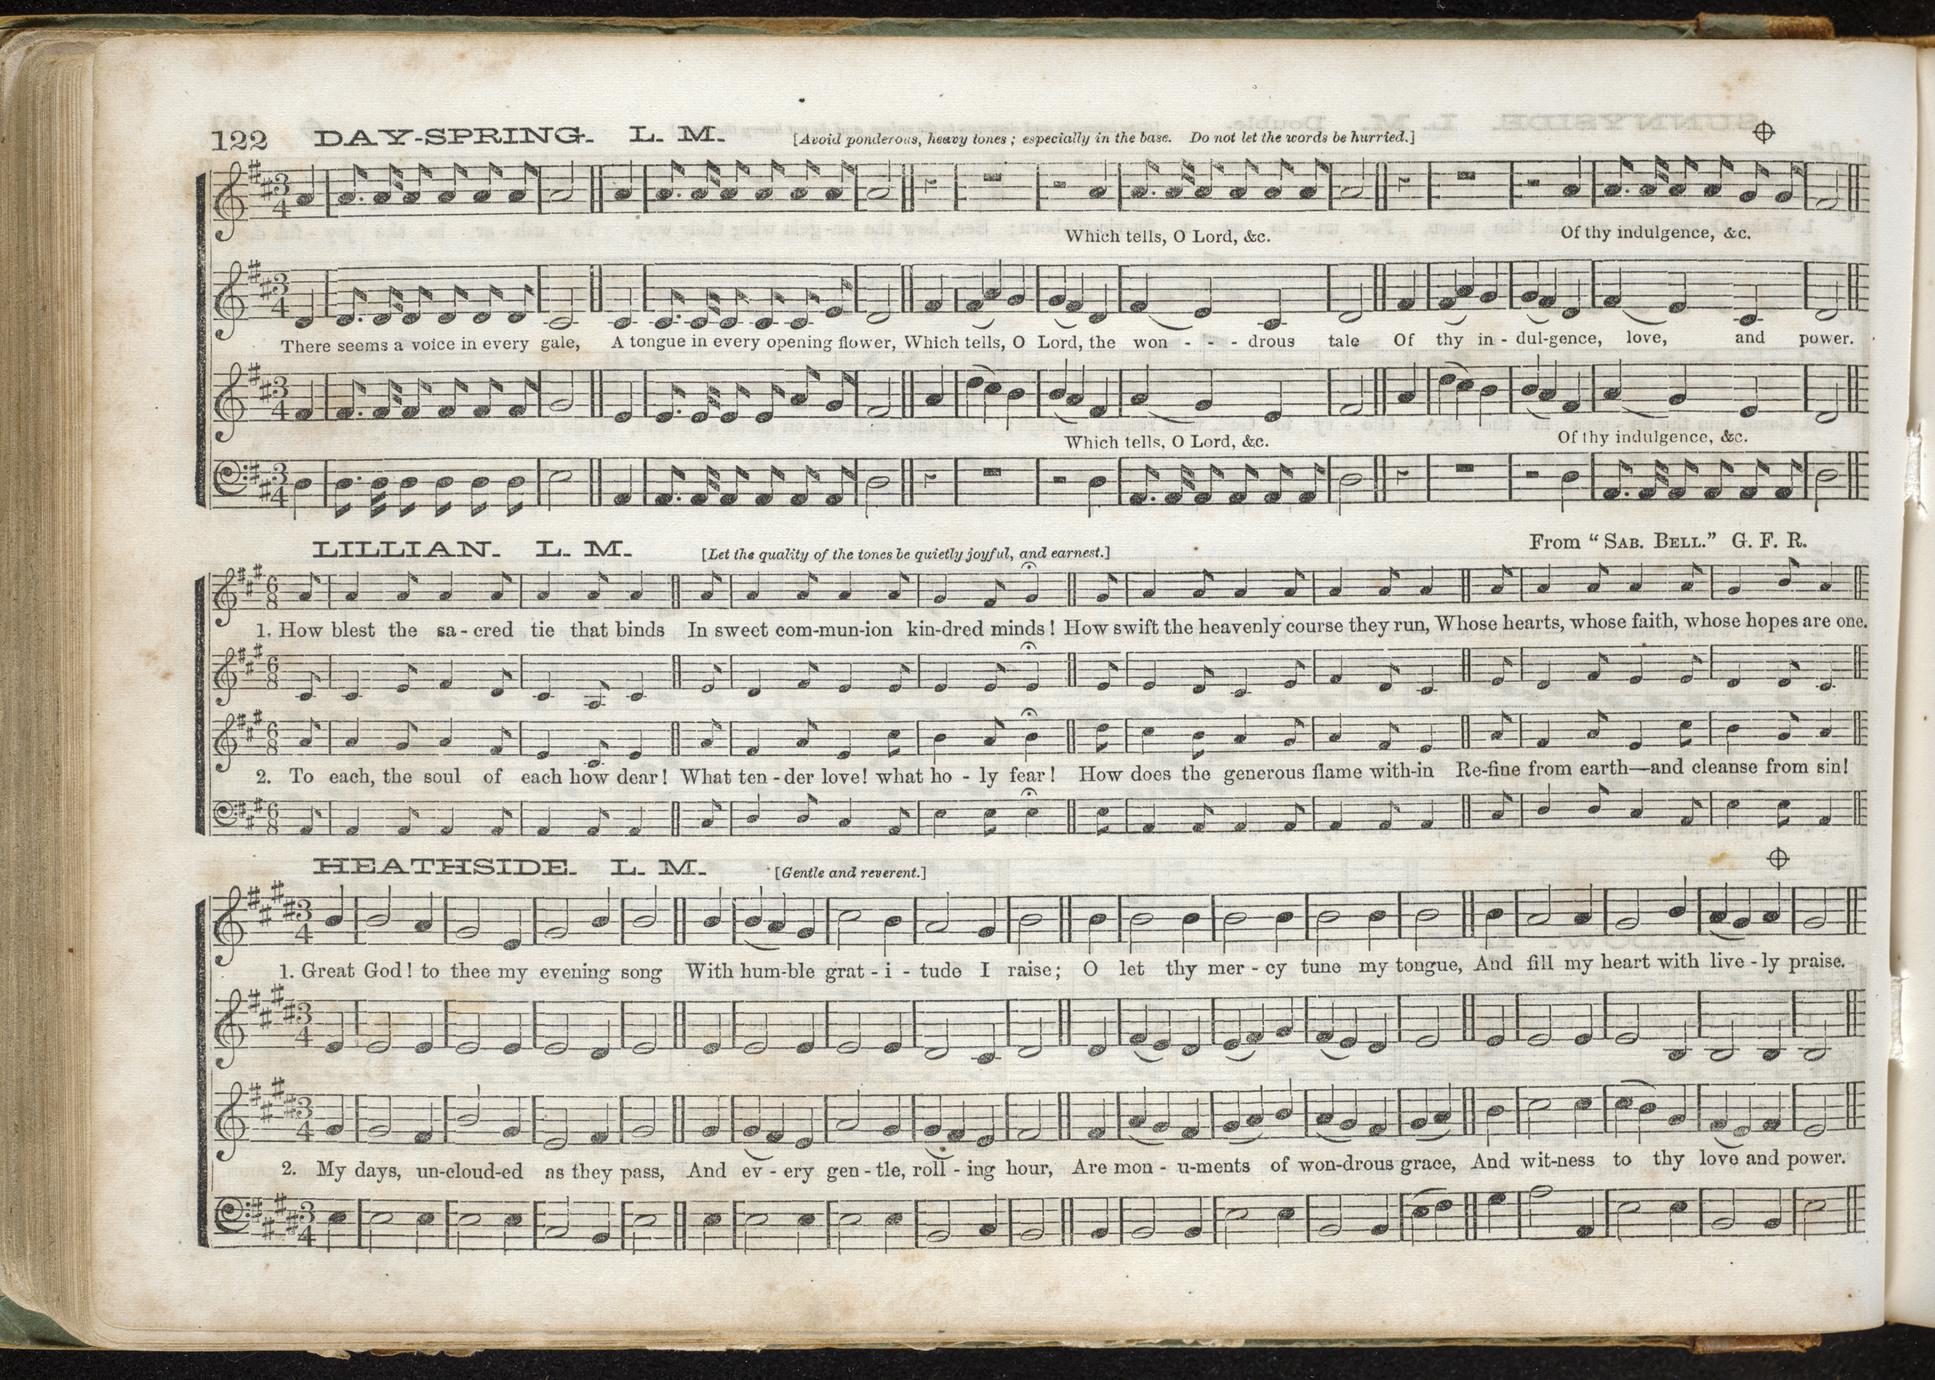 122 DAY-SPRING. L. M. [Avoid ponderous, heavy tones; especially in the base. Do not let the words be hurried.]
Which tells, O Lord, &c. Of thy indulgence, &c.
There seems a voice in every gale, A tongue in every opening flower, Which tells, O Lord, the won - - - drous tale Of thy in - dul-gence, love, and power.
Which tells, O Lord, &c. Of thy indulgence, &c.
LILLIAN. L. M. [Let the quality of the tones be quietly joyful, and earnest.] From "SAB. BELL." G. F. R.
1. How blest the sa - cred tie that binds In sweet com-mun-ion kin-dred minds! How swift the heavenly course they run, Whose hearts, whose faith, whose hopes are one.
2. To each, the soul of each how dear! What ten - der love! what ho - ly fear! How does the generous flame with-in Re-fine from earth—and cleanse from sin!
HEATHSIDE. L. M. [Gentle and reverent.]
1. Great God! to thee my evening song With hum-ble grat - i - tude I raise; O let thy mer - cy tune my tongue, And fill my heart with live - ly praise.
2. My days, un-cloud-ed as they pass, And ev - ery gen - tle, roll - ing hour, Are mon - u-ments of won-drous grace, And wit-ness to thy love and power.